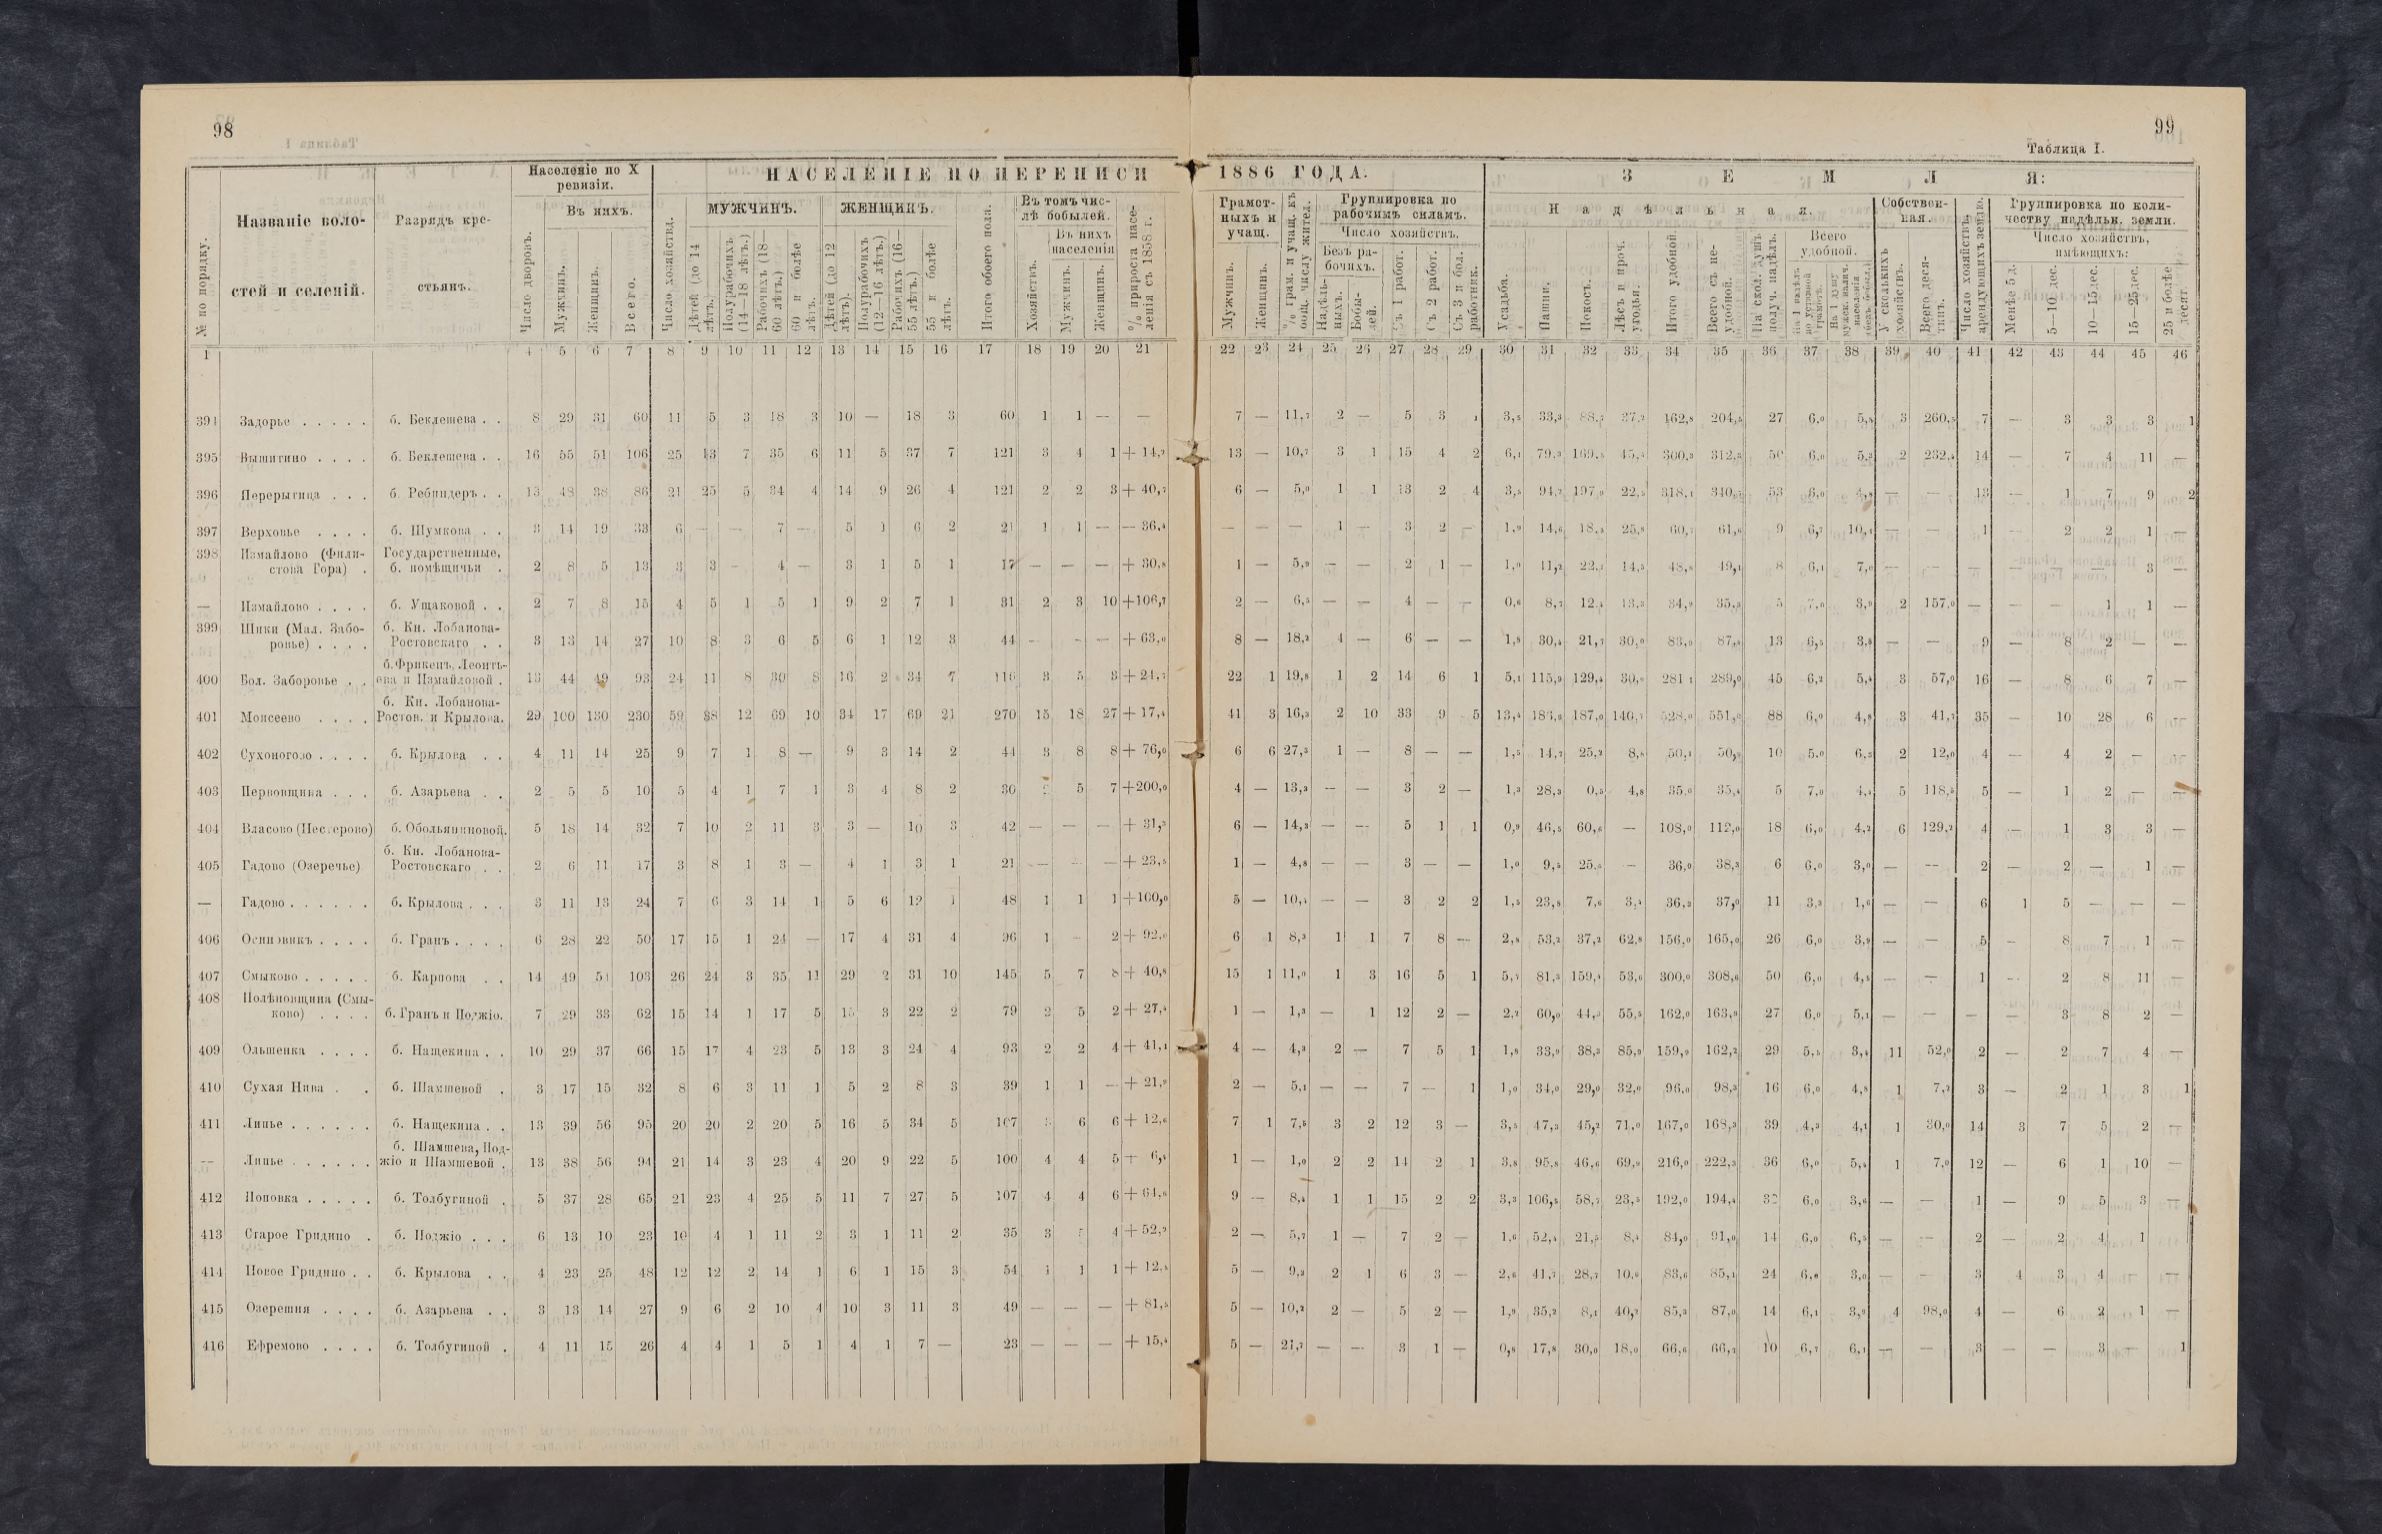 98
99
Таблица I.
Названіе воло-
стей и селеній.
Разрядъ кре-
стьянъ.
№ по порядку.
Населеніе по X
ревизіи.
Въ нихъ.
Число дворовъ.
Мужчинъ.
Женщинъ.
Всего.
НАСЕЛЕНІЕ ПО ПЕРЕПИСИ 1886 ГОДА.
Число хозяйствъ.
МУЖЧИНЪ.
Дѣтей (до 14 лѣтъ.)
Полурабочихъ (14—18 лѣтъ.)
Рабочихъ (18—60 лѣтъ.)
60 и болѣе лѣтъ.
ЖЕНЩИНЪ.
Дѣтей (до 12 лѣтъ).
Полурабочихъ (12—16 лѣтъ.)
Рабочихъ (16—55 лѣтъ.)
55 и болѣе лѣтъ.
Итого обоего пола.
Въ томъ чис-
лѣ бобылей.
Въ нихъ
населенія
Хозяйствъ.
Мужчинъ.
Женщинъ.
% прироста насе-
ленія съ 1858 г.
Грамот-
ныхъ и
учащ.
Мужчинъ.
Женщинъ.
% грам. и учащ. къ
общ. числу жител.
Группировка по
рабочимъ силамъ.
Число хозяйствъ.
Безъ ра-
бочихъ.
Надѣль-
ныхъ.
Бобы-
лей.
Съ 1 работ.
Съ 2 работ.
Съ 3 и бол.
работник.
ЗЕМЛЯ:
Надѣльная.
Усадьба.
Пашни.
Покосъ.
Лѣсъ и проч.
угодья.
Итого удобной.
Всего съ не-
удобной.
На скол. душъ
получ. надѣлъ.
Всего
удобной.
На 1 надѣлъ
по уставной
грамотѣ.
На 1 душу
мужск. налич.
населенія
Собствен-
ная.
У сколькихъ
хозяйствъ.
Всего деся-
тинъ.
Число хозяйствъ,
арендующихъ землю.
Группировка по коли-
честву надѣльн. земли.
Число хозяйствъ,
имѣющихъ:
Менѣе 5 д.
5—10 дес.
10—15 дес.
15—25 дес.
25 и болѣе
десят.
1 4 5 6 7 8 9 10 11 12 13 14 15 16 17 18 19 20 21 22 23 24 25 26 27 28 29 30 31 32 33 34 35 36 37 38 39 40 41 42 43 44 45 46
394 Задорье . . . . . б. Беклешева . . 8 29 31 60 11 5 3 18 3 10 — 18 3 60 1 1 — — 7 — 11,7 2 — 5 3 1 3,5 33,3 88,7 37,2 162,8 204,5 27 6,0 5,8 3 260,5 7 — 3 3 3 1
395 Вышитино . . . . б. Беклешева . . 16 55 51 106 25 13 7 35 6 11 5 37 7 121 3 4 1 + 14,2 13 — 10,7 3 1 15 4 2 6,1 79,3 169,5 45,4 300,3 312,3 50 6,0 5,3 2 232,4 14 — 7 4 11 —
396 Перерытица . . . б. Ребиндеръ . . 13 48 38 86 21 25 5 34 4 14 9 26 4 121 2 2 3 + 40,7 6 — 5,0 1 1 13 2 4 3,5 94,7 197,0 22,5 318,1 340,2 53 6,0 4,8 — — 13 — 1 7 9 2
397 Верховье . . . . б. Шумкова . . 3 14 19 33 6 — — 7 — 5 1 6 2 21 1 1 — — 36,4 — — — 1 — 3 2 — 1,9 14,6 18,5 25,8 60,7 61,6 9 6,7 10,1 — — 1 — 2 2 1 —
398 Измайлово (Фили- Государственные,
стова Гора) . б. помѣщичьи . 2 8 5 13 3 3 — 4 — 3 1 5 1 17 — — — + 30,8 1 — 5,9 — — 2 1 — 1,0 11,2 22,1 14,5 48,8 49,1 8 6,1 7,0 — — — — — — 3 —
— Измайлово . . . . б. Ущаковой . . 2 7 8 15 4 5 1 5 1 9 2 7 1 31 2 3 10 +106,7 2 — 6,5 — — 4 — — 0,6 8,7 12,4 13,3 34,9 35,3 5 7,0 3,9 2 157,0 — — — 1 1 —
399 Шики (Мал. Забо- б. Кн. Лобанова-
ровье) . . . . Ростовскаго . . 3 13 14 27 10 8 3 6 5 6 1 12 3 44 — — — + 63,0 8 — 18,2 4 — 6 — — 1,8 30,4 21,7 30,0 83,0 87,8 13 6,5 3,8 — — 9 — 8 2 — —
б. Фрикенъ, Леонть-
400 Бол. Заборовье . . ева и Измайловой . 13 44 49 93 24 11 8 30 8 16 2 34 7 116 3 5 3 + 24,7 22 1 19,8 1 2 14 6 1 5,1 115,9 129,4 30,8 281,1 289,0 45 6,2 5,4 3 57,0 16 — 8 6 7 —
б. Кн. Лобанова-
401 Моисеево . . . . Ростов. и Крылова. 29 100 130 230 59 38 12 69 10 34 17 69 21 270 15 18 27 + 17,4 41 3 16,3 2 10 33 9 5 13,4 186,9 187,0 140,7 528,0 551,0 88 6,0 4,8 3 41,7 35 — 10 28 6 —
402 Сухоногово . . . . б. Крылова . . 4 11 14 25 9 7 1 8 — 9 3 14 2 44 3 8 8 + 76,0 6 6 27,3 1 — 8 — — 1,5 14,7 25,2 8,8 50,2 50,9 10 5,0 6,3 2 12,0 4 — 4 2 — —
403 Первовщина . . . б. Азарьева . . 2 5 5 10 5 4 1 7 1 3 4 8 2 30 2 5 7 +200,0 4 — 13,3 — — 3 2 — 1,3 28,3 0,5 4,8 35,0 35,4 5 7,0 4,4 5 118,5 5 — 1 2 — —
404 Власово (Пестерово) б. Обольяниновой. 5 18 14 32 7 10 2 11 3 3 — 10 3 42 — — — + 31,3 6 — 14,3 — — 5 1 1 0,9 46,5 60,6 — 108,0 112,0 18 6,0 4,2 6 129,2 4 — 1 3 3 —
б. Кн. Лобанова-
405 Гадово (Озеречье) Ростовскаго . . 2 6 11 17 3 8 1 3 — 4 1 3 1 21 — — — + 23,5 1 — 4,8 — — 3 — — 1,0 9,5 25,5 — 36,0 38,3 6 6,0 3,0 — — 2 — 2 — 1 —
— Гадово . . . . . . б. Крылова . . . 3 11 13 24 7 6 3 14 1 5 6 12 1 48 1 1 1 +100,0 5 — 10,4 — — 3 2 2 1,5 23,8 7,6 3,4 36,3 37,0 11 3,3 1,6 — — 6 1 5 — — —
406 Осиновикъ . . . . б. Гранъ . . . . 6 28 22 50 17 15 1 24 — 17 4 31 4 96 1 — 2 + 92,0 6 1 8,3 1 1 7 8 — 2,8 53,2 37,2 62,8 156,0 165,0 26 6,0 3,9 — — 5 — 8 7 1 —
407 Смыково . . . . . б. Карпова . . 14 49 54 103 26 24 3 35 11 29 2 31 10 145 5 7 8 + 40,8 15 1 11,0 1 3 16 5 1 5,7 81,3 159,4 53,6 300,0 308,6 50 6,0 4,5 — — 1 — 2 8 11 —
408 Полѣновщина (Смы-
ково) . . . . б. Гранъ и Поджіо. 7 29 33 62 15 14 1 17 5 15 3 22 2 79 2 5 2 + 27,4 1 — 1,3 — 1 12 2 — 2,2 60,0 44,3 55,5 162,0 163,8 27 6,0 5,1 — — — — 3 8 2 —
409 Ольшенка . . . . б. Нащекина . . 10 29 37 66 15 17 4 23 5 13 3 24 4 93 2 2 4 + 41,1 4 — 4,3 2 — 7 5 1 1,8 33,9 38,3 85,9 159,9 162,2 29 5,5 3,4 11 52,0 2 — 2 7 4 —
410 Сухая Нива . . б. Шамшевой . 3 17 15 32 8 6 3 11 1 5 2 8 3 39 1 1 — + 21,9 2 — 5,1 — — 7 — 1 1,0 34,0 29,0 32,0 96,0 98,3 16 6,0 4,8 1 7,2 3 — 2 1 3 1
411 Липье . . . . . . б. Нащекина . . 13 39 56 95 20 20 2 20 5 16 5 34 5 107 3 6 6 + 12,6 7 1 7,5 3 2 12 3 — 3,5 47,3 45,2 71,0 167,0 168,3 39 4,3 4,1 1 30,0 14 3 7 5 2 —
б. Шамшева, Под-
— Липье . . . . . . жіо и Шамшевой . 13 38 56 94 21 14 3 23 4 20 9 22 5 100 4 4 5 + 6,4 1 — 1,0 2 2 14 2 1 3,8 95,8 46,6 69,9 216,0 222,3 36 6,0 5,4 1 7,0 12 — 6 1 10 —
412 Поповка . . . . . б. Толбугиной . 5 37 28 65 21 23 4 25 5 11 7 27 5 107 4 4 6 + 64,6 9 — 8,4 1 1 15 2 2 3,3 106,5 58,7 23,5 192,0 194,4 32 6,0 3,6 — — 1 — 9 5 3 —
413 Старое Гридино . б. Поджіо . . . 6 13 10 23 10 4 1 11 2 3 1 11 2 35 3 5 4 + 52,2 2 — 5,7 1 — 7 2 — 1,6 52,4 21,5 8,4 84,0 91,0 14 6,0 6,5 — — 2 — 2 4 1
414 Новое Гридино . . б. Крылова . . 4 23 25 48 12 12 2 14 1 6 1 15 3 54 1 1 1 + 12,5 5 — 9,3 2 1 6 3 — 2,6 41,7 28,7 10,6 83,6 85,1 24 6,8 3,0 — — 3 4 3 4 — —
415 Озерешня . . . . б. Азарьева . . 3 13 14 27 9 6 2 10 4 10 3 11 3 49 — — — + 81,5 5 — 10,2 2 — 5 2 — 1,9 35,2 8,1 40,2 85,3 87,0 14 6,1 3,9 4 98,0 4 — 6 2 1 —
416 Ефремово . . . . б. Толбугиной . 4 11 15 26 4 4 1 5 1 4 1 7 — 23 — — — + 15,4 5 — 21,7 — — 3 1 — 0,8 17,8 30,0 18,0 66,6 66,7 10 6,7 6,1 — — 3 — — 3 — 1